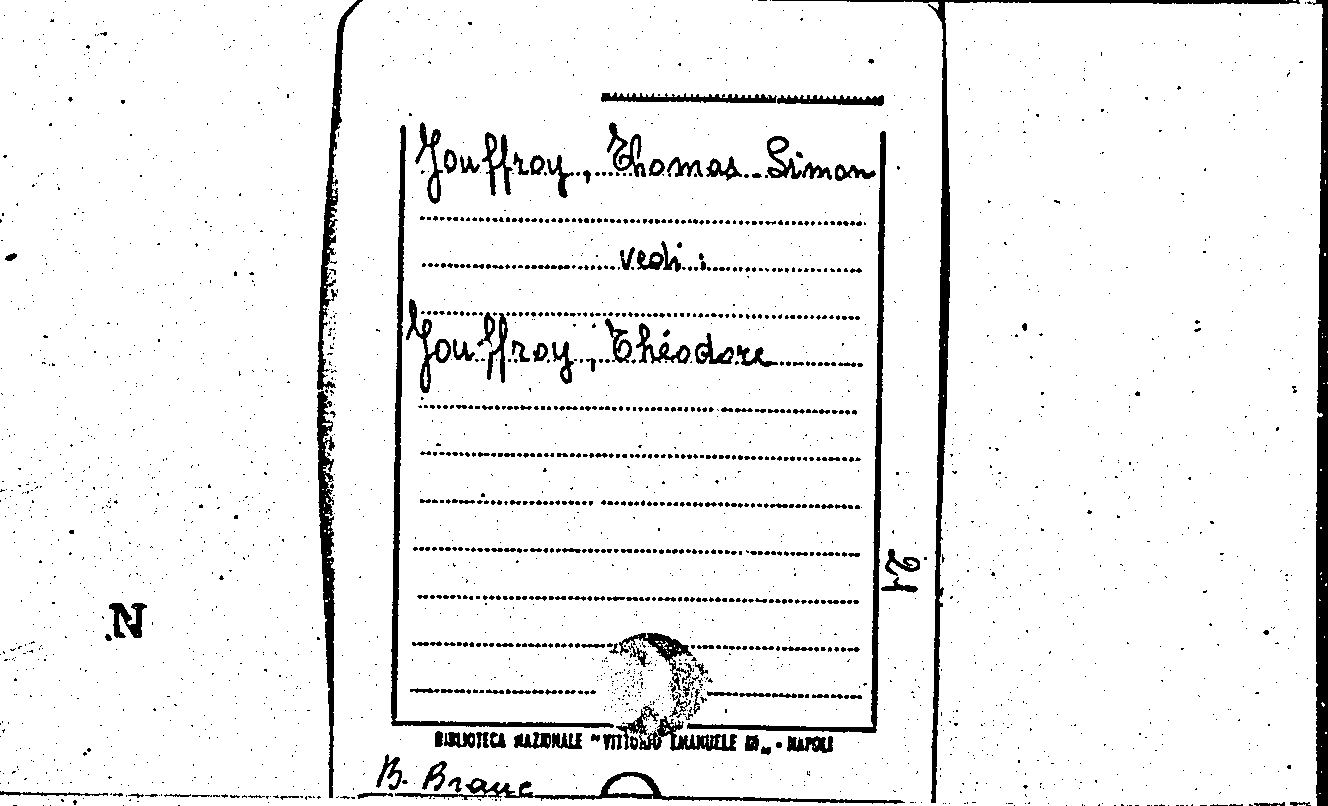 Jouffroy, Thomas Simon
vedi:
Jouffroy, Théodore
N
BIBLIOTECA NAZIONALE "VITTORIO EMANUELE III" - NAPOLI
B. Branc